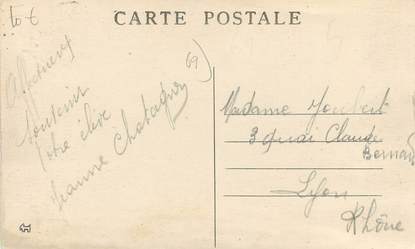 10 €
CARTE POSTALE
69
Affectueux
souvenir
Votre élève
Jeanne
Madame Joubert
3 quai Claude
Bernard
Lyon
Rhône